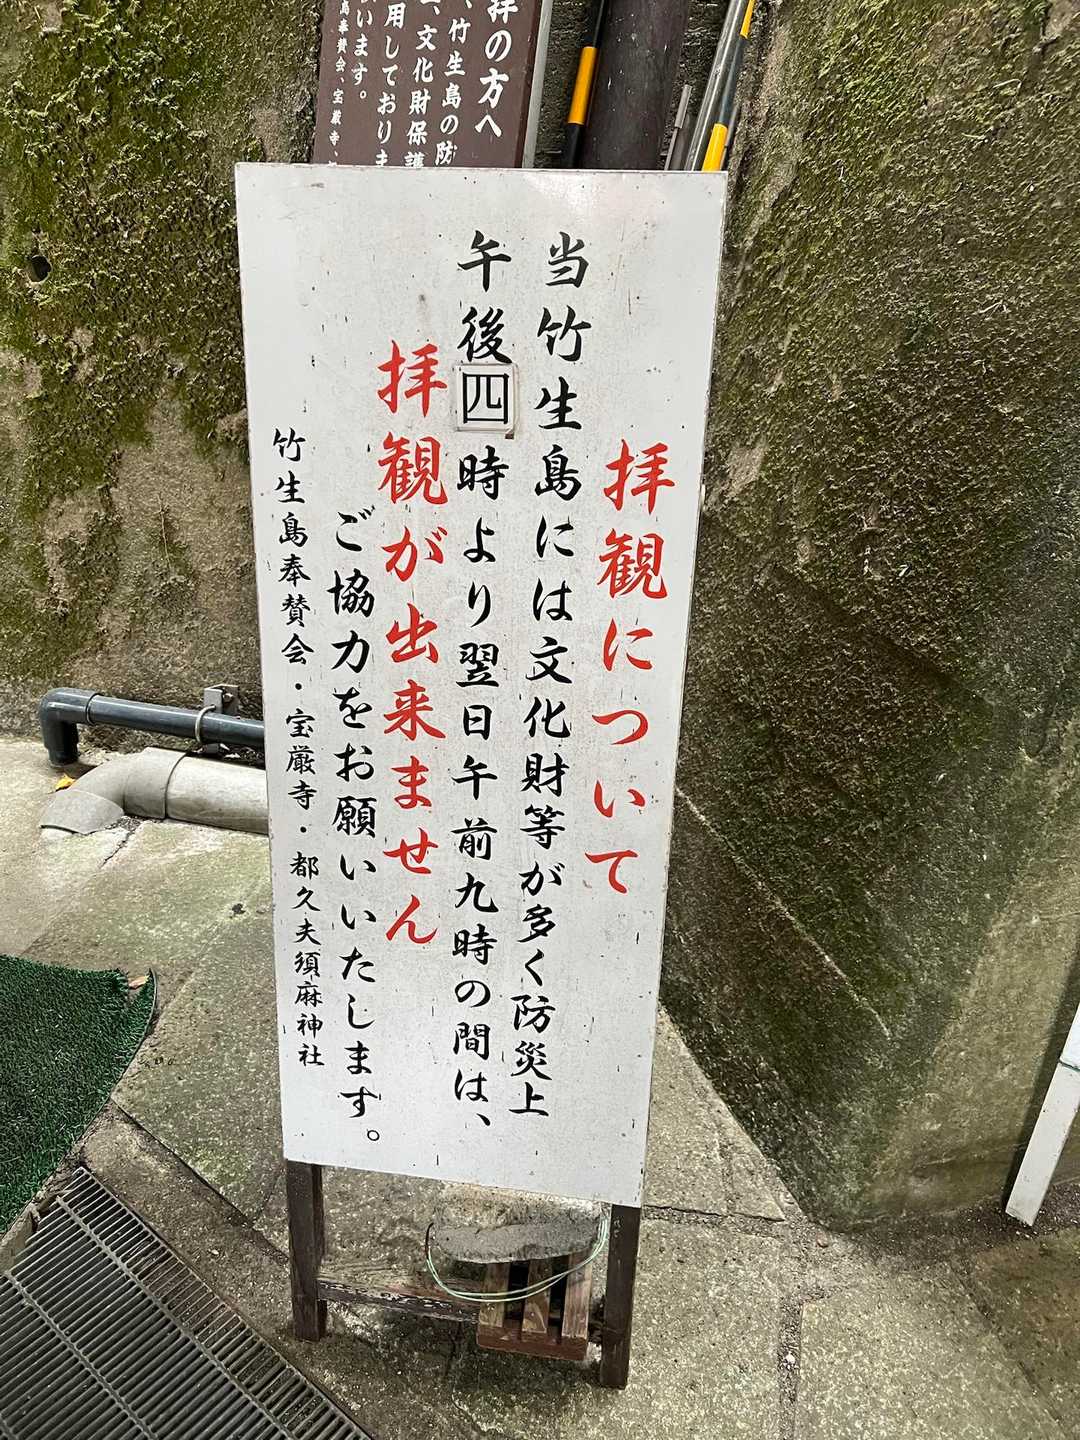 拝観について
当竹生島には文化財等が多く防災上
午後四時より翌日午前九時の間は、
拝観が出来ません
ご協力をお願いいたします。
竹生島奉賛会・宝厳寺・都久夫須麻神社
拝の方へ
、竹生島の防
、文化財保護
用しておりま
います。
島奉賛会、宝厳寺、